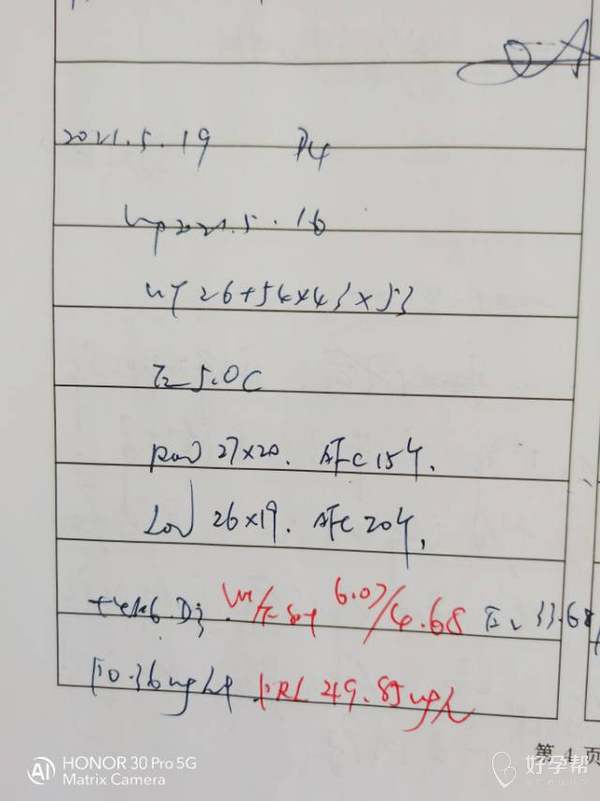 2021.5.19 D4
Lmp2021.5.16
UT 26+54×43×53
En5.0C
Rov 27×20. AFC 15个.
Lov 26×19. AFC 20个,
D3 6.07/4.68 E2 33.68
P0.36ng/ml PRL 49.85ng/L
第 4 页
HONOR 30 Pro 5G
Matrix Camera
好孕帮